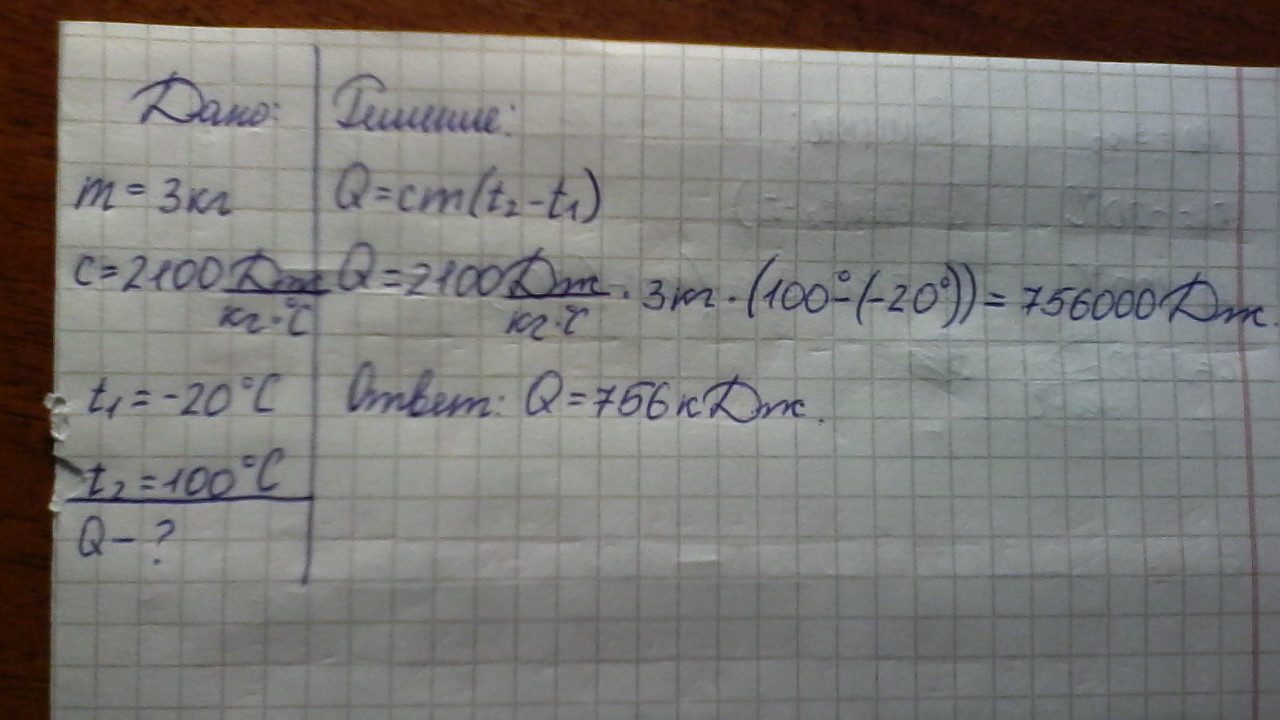 Дано:
m = 3кг
c = 2100 Дж/кг·°C
t₁ = -20°C
t₂ = 100°C
Q - ?
Решение:
Q = cm(t₂ - t₁)
Q = 2100 Дж/кг·°C · 3кг · (100° - (-20°)) = 756000 Дж.
Ответ: Q = 756 кДж.